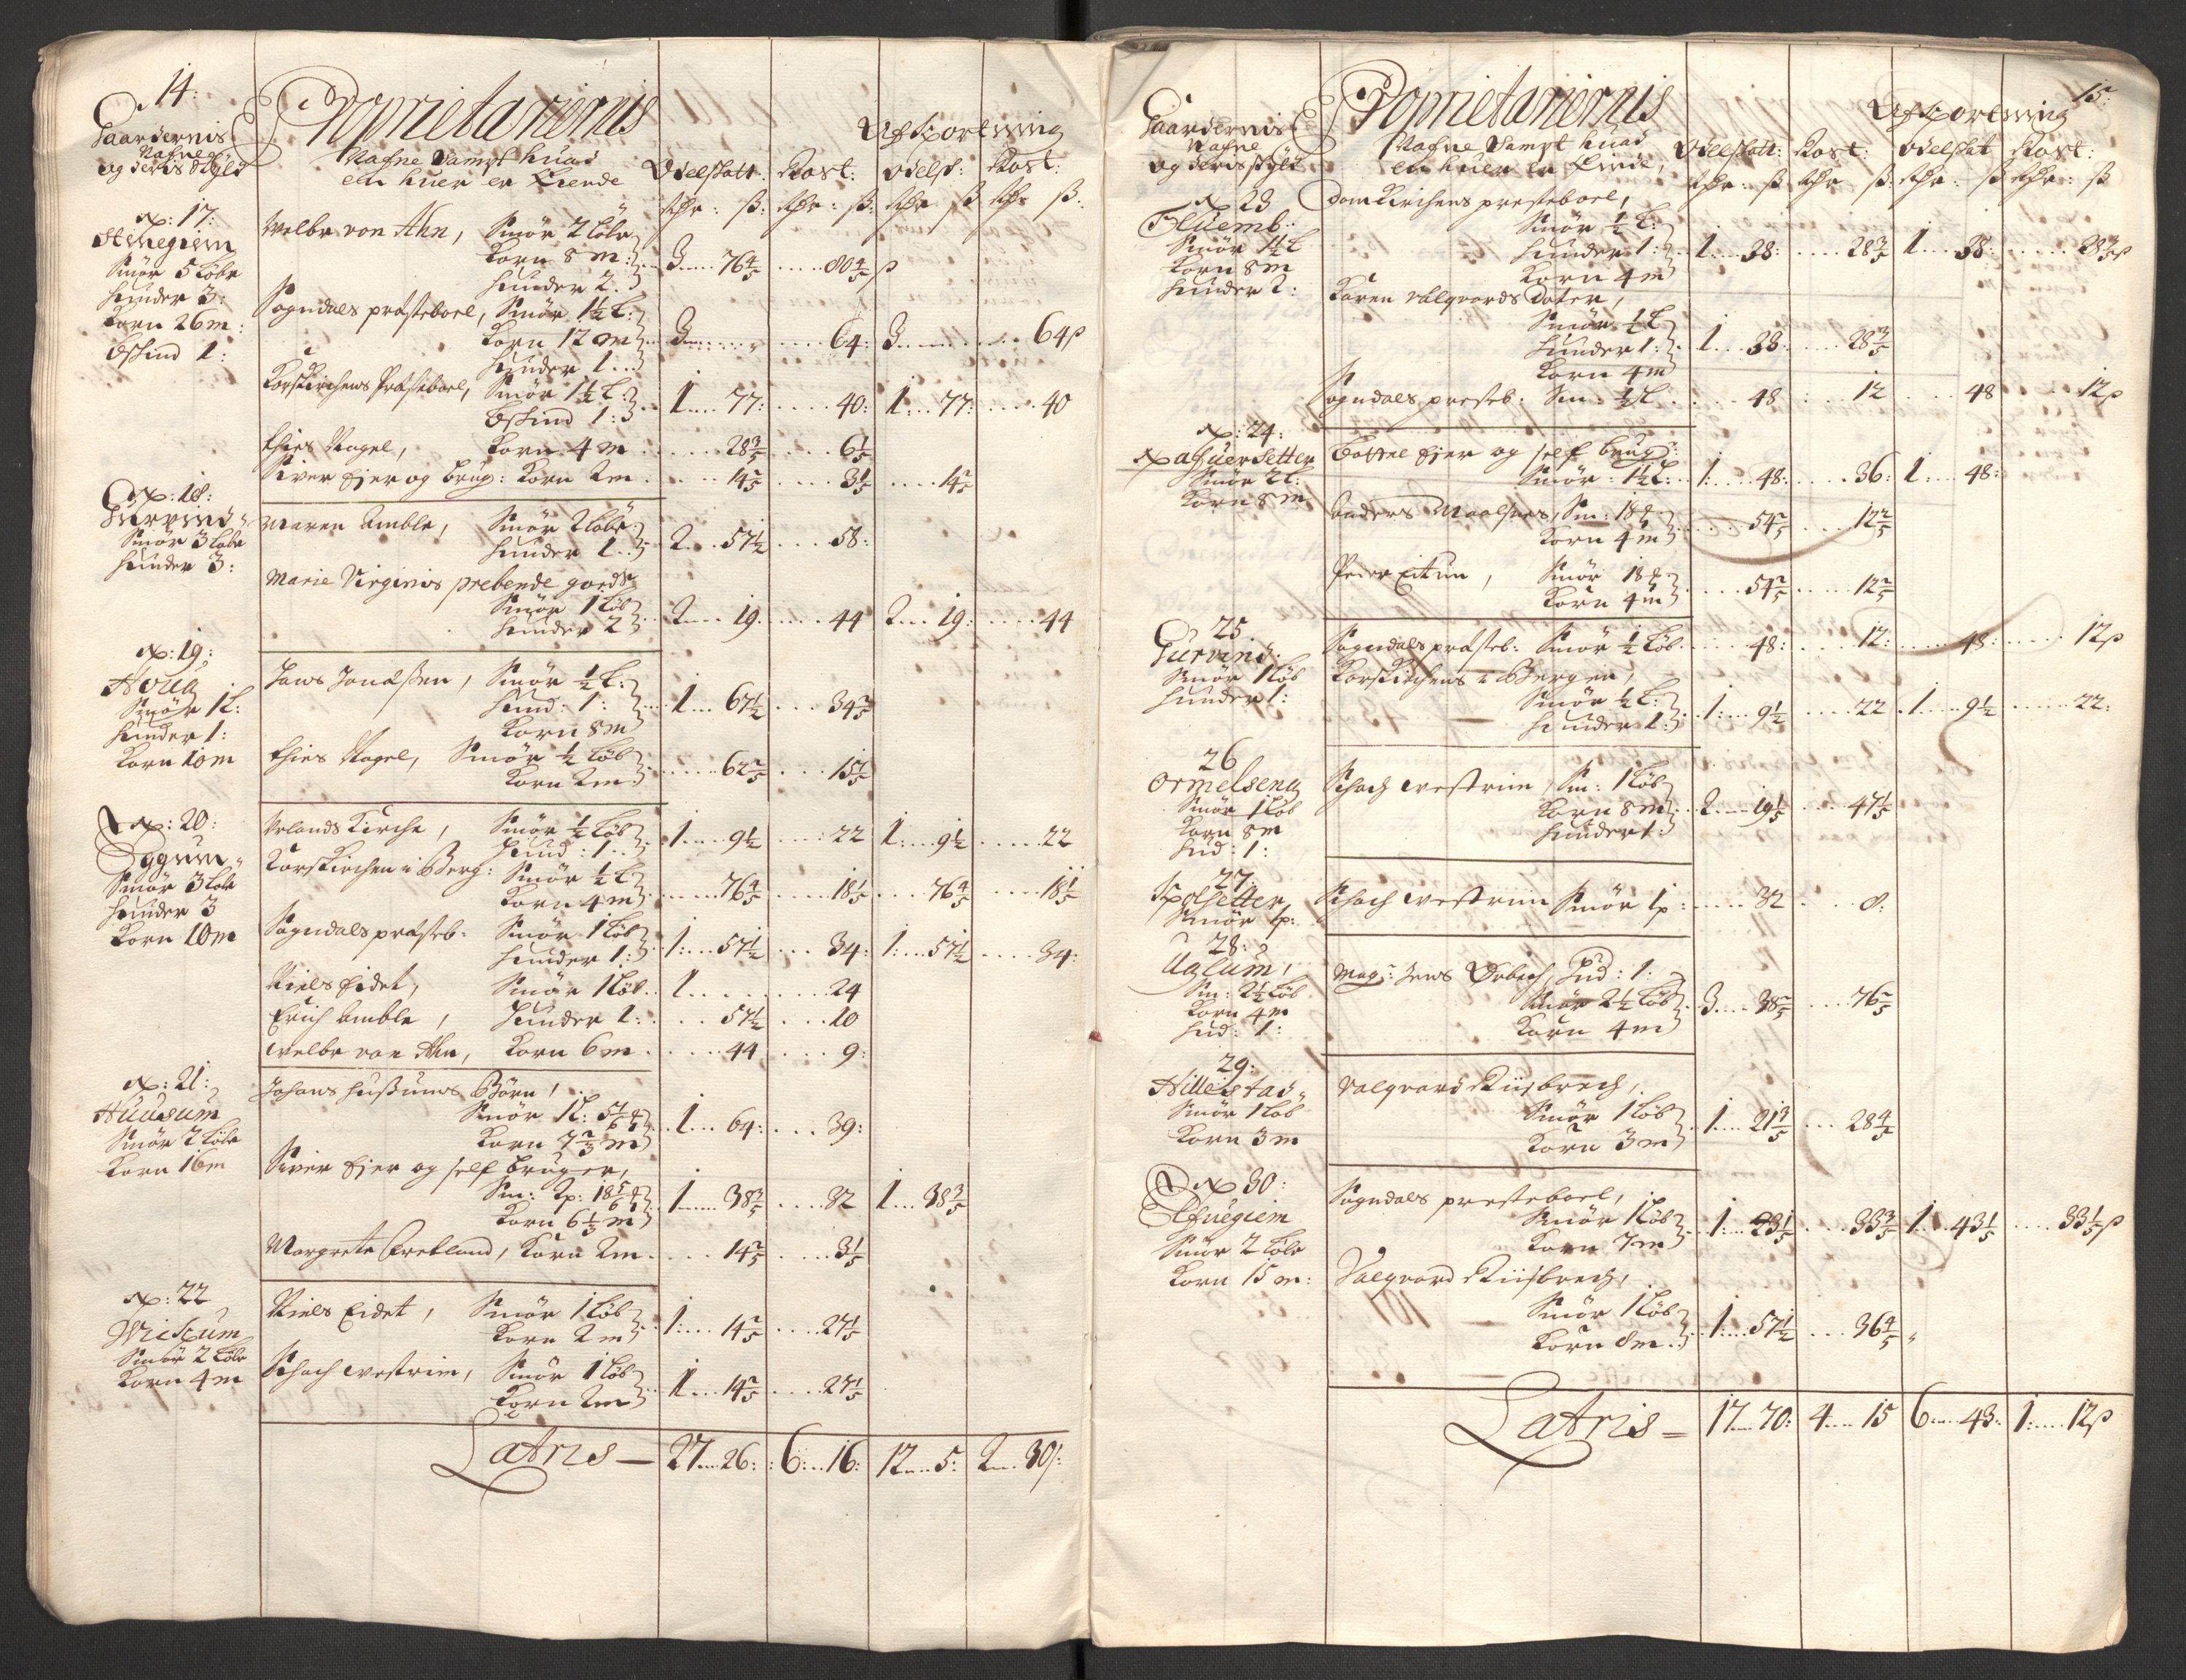 14:
Gaardernis
Nafne
og deris Skyld
Proprietarernis
Nafne Sampt huad
en huer er Eiende
Odelskatt: Rost:
Afkortning
Odelsk: Rost:
Rdr: ß: Rdr: ß: Rdr ß Rdr ß:
No: 17:
Stenegiem
Smør 5 Løbe
Huuder 3:
Korn 26 m:
Bskind 1:
Welbr von Ahn, Smør 2 Løbe
Korn 8 m:
Huuder 2. 3....76 4/5 ....80 4/5 ß
Sogndals præsteboel, Smør 1½ L:
Korn 12 m
Huuder 1... 3...... ....64: 3...... ....64 ß
Korskirchens Præsteboel, Smør 1½ L:
Bskind 1: 1....77: ....40: 1....77: ....40
Thies Nagel, Korn 4 m ....28 4/5 ....6 2/5
Siver Ejer og brug: Korn 2 m ....14 2/5 ....3 1/5 ....14 2/5
No: 18:
Gurvind
Smør 3 Løbe
Huuder 3:
Maren Amble, Smør 2 Løbe
Huuder 1.. 2....57½ ....58:
Marie Virginis prebende gods
Smør 1 Løb
Huuder 2 2....19. ....44 2...19: ....44
No: 19:
Houg
Smør 1 L:
Huuder 1:
Korn 10 m
Jens Jonæssen, Smør ½ L:
Huud: 1:
Korn 8 m 1...67½ ...34 2/5
Thies Nagel, Smør ½ Løb
Korn 2 m ......62 2/5 ...15 1/5
No: 20:
Eggum
Smør 3 Løbe
Huuder 3
Korn 10 m
Urlands Kirche, Smør ½ Løb
Huud: 1.. 1....9½ ....22 1....9½ ....22
Korskirchen i Berg: Smør ½ L
Korn 4 m ......76 4/5 ....18 1/5 ....76 4/5 ....18 1/5
Sogndals præsteb: Smør 1 Løb
Huuder 1: 1:...57½ ...34: 1:...57½ ....34:
Niels Eidet, Smør 1 Løb.. 1... ....24
Erich Amble, Huuder 1: ...57½ ...10
Welbr von Ahn, Korn 6 m ....44 ...9:
No: 21:
Huusum
Smør 2 Løbe
Korn 16 m
Johans Hussums Børn,
Smør 1 L:
Korn 7 2/3 m 1...64: ...39:
Siver Ejer og self bruger,
Sm: 2 p: 18
Korn 6 1/3 m 1.....38 3/5 ....32 1...38 3/5
Margrete Fretland, Korn 2 m ....14 2/5 ....3 1/5
No: 22
Wichum
Smør 2 Løbe
Korn 4 m
Niels Eidet, Smør 1 Løb
Korn 2 m 1:...14 2/5 ...27 1/5
Schach Westrim, Smør 1 Løb
Korn 2 m 1...14 2/5 ....27 1/5
Latris — 27...26: 6:..16: 12...5: 2...30ß:
15:
Gaardernis
Nafne
og deris skyld
Proprietarernis
Nafne Sampt huad
en huer er Eiende,
Odelskatt: Rost:
Afkortning
Odelskat Rost:
Rdr: ß Rdr ß: Rdr: ß Rdr: ß
No 23
Fluemb.
Smør 1½ L
Korn 8 m
Huuder 2:
Dom Kirchens presteboel,
Smør ½ L:
Huuder 1:
Korn 4 m 1....38: ....28 3/5 1....38: .....28 3/5 ß
Karen Valgvords Dater,
Smør ½ L
Huuder 1:
Korn 4 m 1...38: ....28 3/5
Sogndals presteb: Sm: ½ L ....48 ...12 ....48 .....12 ß
No: 24:
Nafuersetter
Smør 2 L:
Korn 8 m
Bottel Ejer og self brug:
Smør: 1½ L: 1:...48: ....36: 1:...48:
Anders Maalsnes, Sm: 18
Korn 4 m ....54 2/5 ....12 2/5
Peder Eitun, Smør 18
Korn 4 m ....54 2/5 ....12 2/5
25
Gurvind
Smør 1 Løb
Huuder 1:
Sogndals præsteb: Smør ½ Løb ....48: ....12: ....48: .....12 ß
Korskirchens i Bergen,
Smør ½ L:
Huuder 1: 1:...9½ ....22 1....9½ .....22:
26
Ormelseng
Smør 1 Løb
Korn 8 m
Hud: 1:
Schach Westrim, Sm: 1 Løb
Korn 8 m
Huuder 1: 2....19 1/5 ...47 1/5
27.
Kolsetter
Smør 1 p:
Schach Westrim Smør 1 p: .....32 ....8:
28:
Uglum,
Sm: 2½ Løb
Korn 4 m
Hud: 1:
Mag:r Jens Ørbech, Hud: 1:
Smør 2½ Løb
Korn 4 m 3....38 2/5 ...76 2/5
29:
Hillestad
Smør 1 Løb
Korn 3 m
Valgvord Riisbrech,
Smør 1 Løb
Korn 3 m 1....21 3/5 ...28 4/5
No 30:
Elfuegiem
Smør 2 Løbe
Korn 15 m:
Sogndals presteboel,
Smør 1 Løb
Korn 7 m 1:...43 1/5 ...33 3/5 1:...43 1/5 ....33 1/5 ß
Valgvord Riisbrech,
Smør 1 Løb
Korn 8 m 1:...57½ ...36 4/5
Latris = 17....70: 4....15 6....43: 1:....12 ß